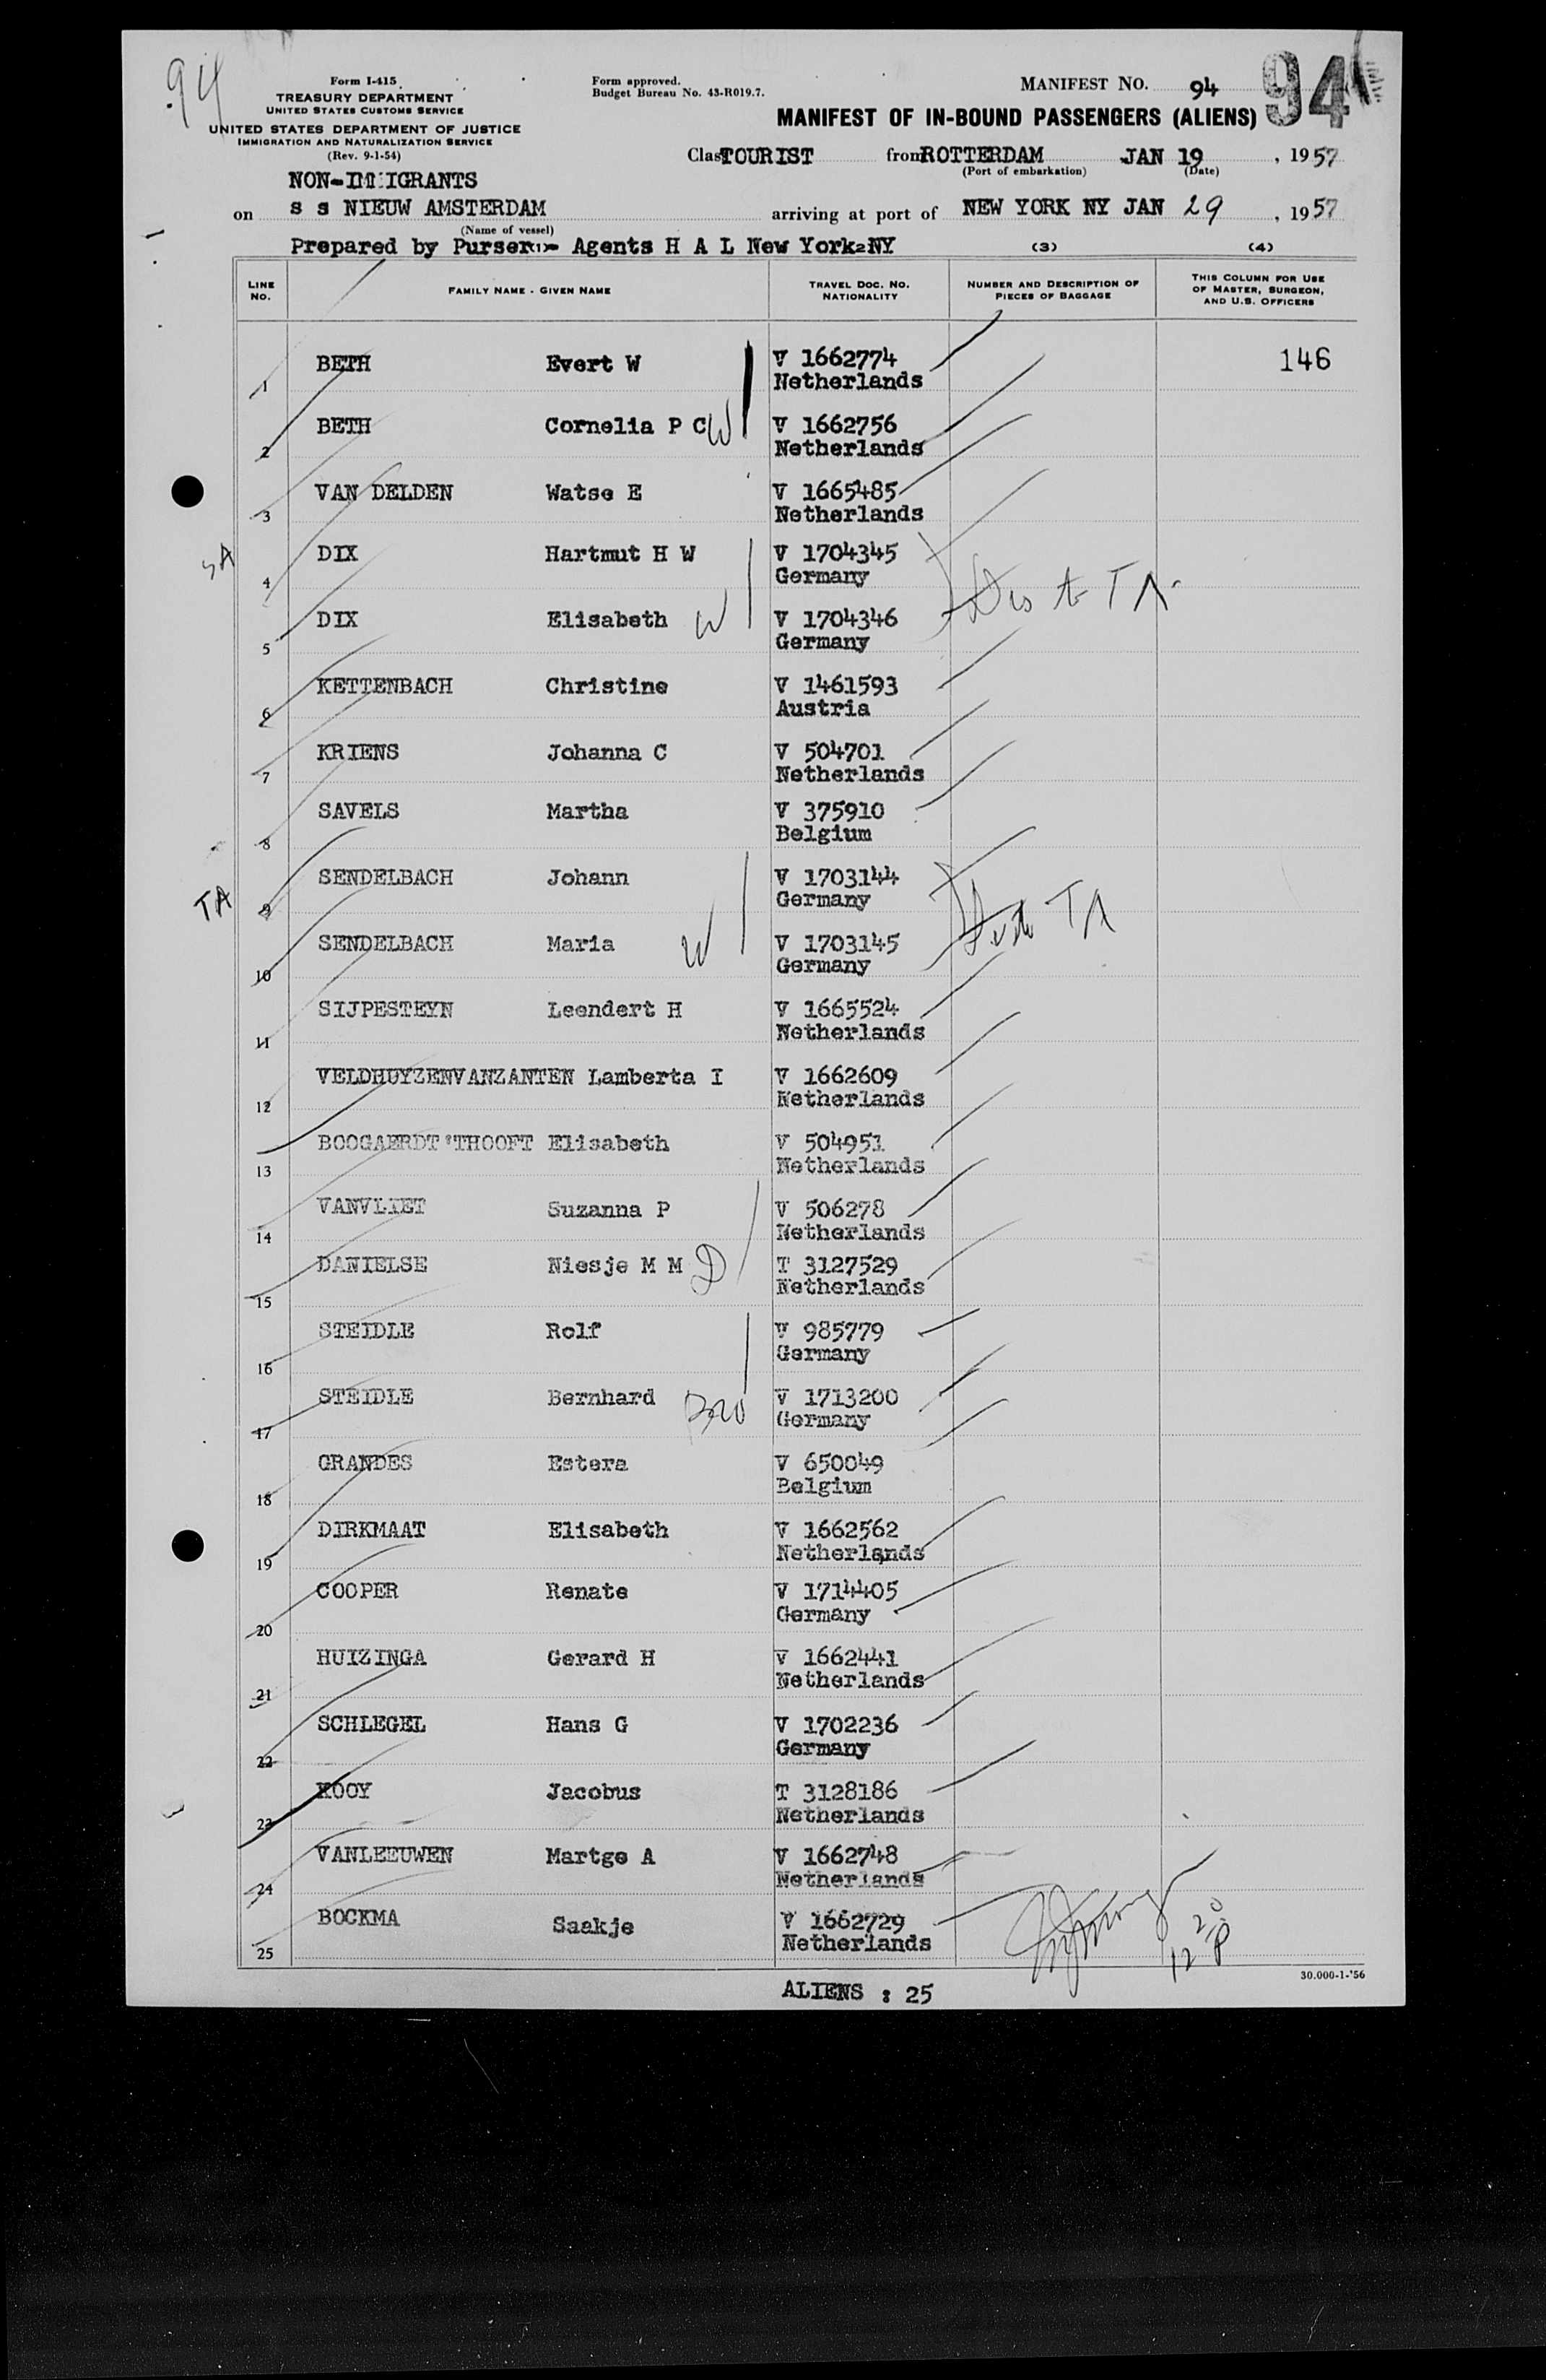 94
Form I-415
TREASURY DEPARTMENT
UNITED STATES CUSTOMS SERVICE
UNITED STATES DEPARTMENT OF JUSTICE
IMMIGRATION AND NATURALIZATION SERVICE
(Rev. 9-1-54)
Form approved.
Budget Bureau No. 43-R019.7.
MANIFEST NO. 94
94
MANIFEST OF IN-BOUND PASSENGERS (ALIENS)
Clas TOURIST from ROTTERDAM JAN 19, 1957
(Port of embarkation) (Date)
NON-IMMIGRANTS
on s s NIEUW AMSTERDAM arriving at port of NEW YORK NY JAN 29, 1957
(Name of vessel)
Prepared by Purser (1) Agents H A L New York 2 NY (3) (4)
LINE NO. FAMILY NAME - GIVEN NAME TRAVEL DOC. NO. NATIONALITY NUMBER AND DESCRIPTION OF PIECES OF BAGGAGE THIS COLUMN FOR USE OF MASTER, SURGEON, AND U.S. OFFICERS
1 BETH Evert W V 1662774 146
Netherlands
2 BETH Cornelia P C W V 1662756
Netherlands
3 VAN DELDEN Watse E V 1665485
Netherlands
4 DIX Hartmut H W V 1704345
Germany
TA
5 DIX Elisabeth W V 1704346
Germany
6 KETTENBACH Christine V 1461593
Austria
7 KRIENS Johanna C V 504701
Netherlands
8 SAVELS Martha V 375910
Belgium
TA 9 SENDELBACH Johann V 1703144
Germany
TA
10 SENDELBACH Maria W V 1703145
Germany
11 SIJPESTEYN Leendert H V 1665524
Netherlands
12 VELDHUYZENVANZANTEN Lamberta I V 1662609
Netherlands
13 BOOGAERDT'THOOFT Elisabeth V 504951
Netherlands
14 VANVLIET Suzanna P V 506278
Netherlands
15 DANIELSE Niesje M M D T 3127529
Netherlands
16 STEIDLE Rolf V 985779
Germany
17 STEIDLE Bernhard Bro V 1713200
Germany
18 GRANDES Estera V 650049
Belgium
19 DIRKMAAT Elisabeth V 1662562
Netherlands
20 COOPER Renate V 1714405
Germany
21 HUIZINGA Gerard H V 1662441
Netherlands
22 SCHLEGEL Hans G V 1702236
Germany
23 KOOY Jacobus T 3128186
Netherlands
24 VANLEEUWEN Martge A V 1662748
Netherlands
25 BOCKMA Saakje V 1662729
Netherlands
12 20 P
30.000-1-'56
ALIENS : 25